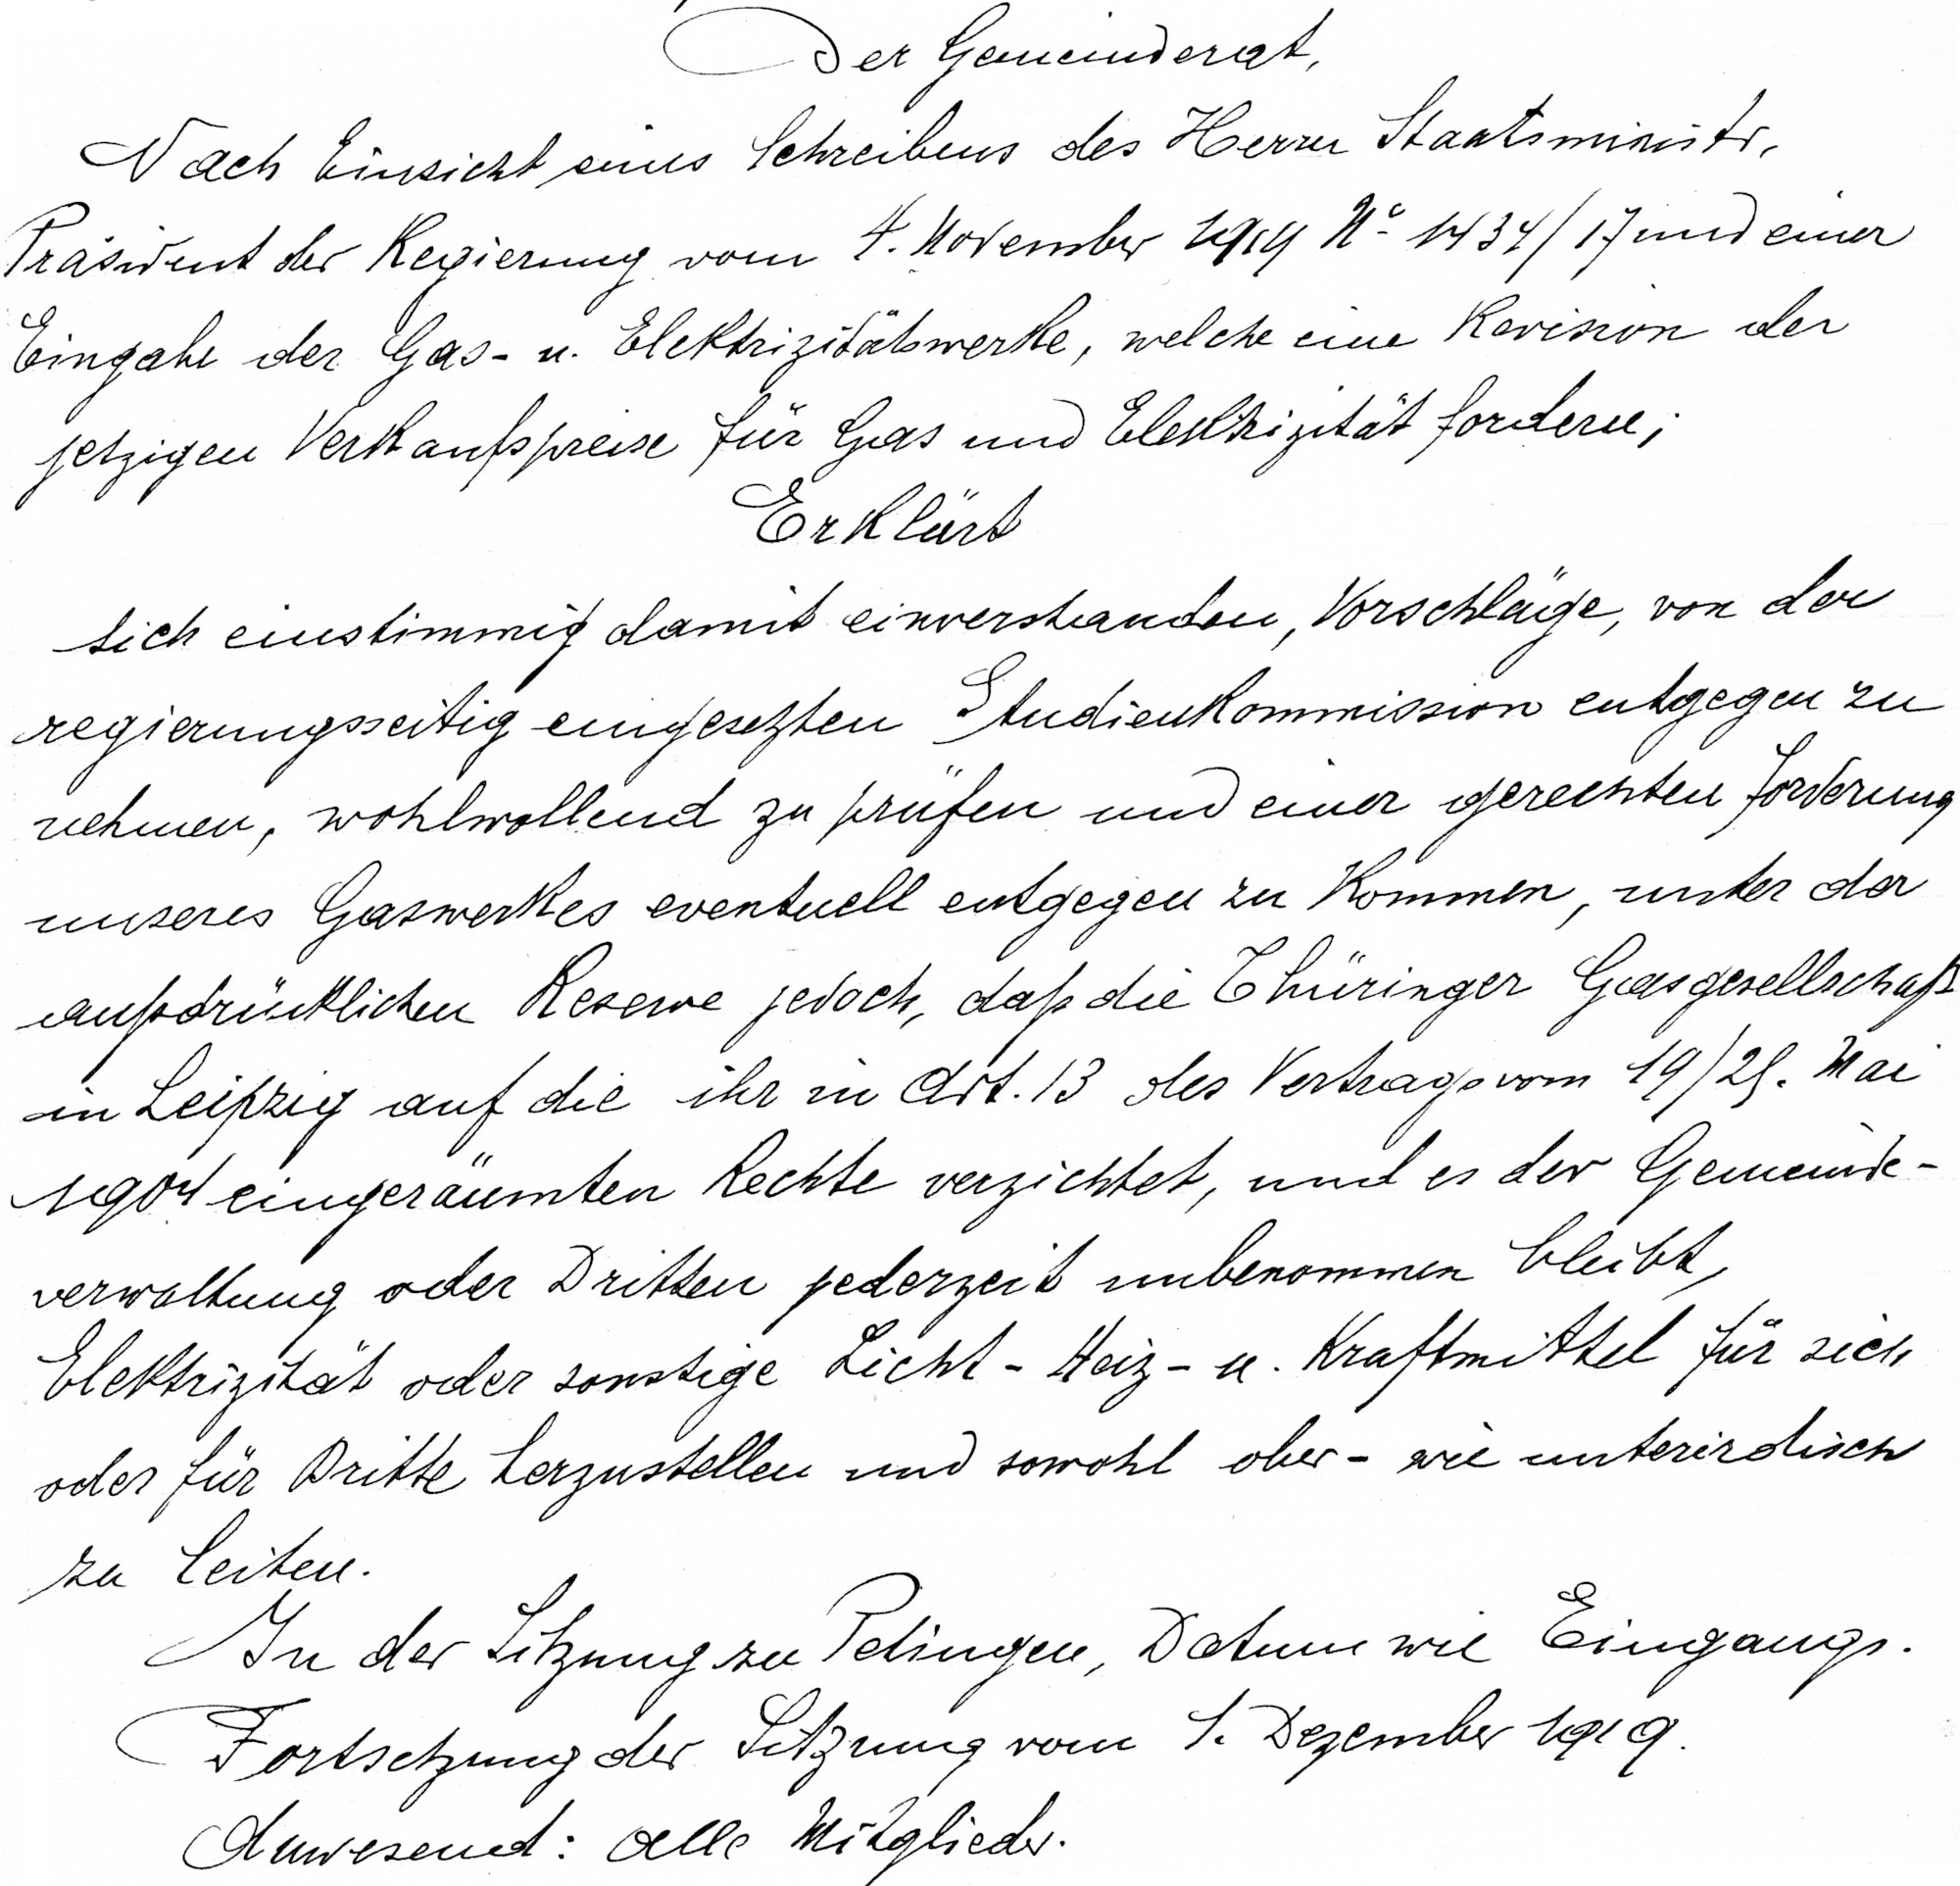 Der Gemeinderat,
Nach Einsicht eines Schreibens des Herrn Staatsministr,
Präsident der Regierung vom 4. November 1919 No 1434/17 und einer
Eingabe der Gas- u. Elektrizitätswerke, welche eine Revision der
jetzigen Verkaufspreise für Gas und Elektrizität fordern;
Erklärt
sich einstimmig damit einverstanden, Vorschläge, von der
regierungsseitig eingesetzten Studienkommission entgegen zu
nehmen, wohlwollend zu prüfen und einer gerechten Forderung
unseres Gaswerkes eventuell entgegen zu kommen, unter der
außdrücklichen Reserve jedoch, daß die Thüringer Gasgesellschaft
in Leipzig auf die ihr in Art. 13 des Vertrags vom 19/25. Mai
1904 eingeräumten Rechte verzichtet, und es der Gemeinde-
verwaltung oder Dritten jederzeit unbenommen bleibt,
Elektrizität oder sonstige Licht- Heiz- u. Kraftmittel für sich
oder für Dritte herzustellen und sowohl ober- wie unterirdisch
zu leiten.
In der Sitzung zu Petingen, Datum wie Eingangs.
Fortsetzung der Sitzung vom 1. Dezember 1919.
Anwesend: alle Mitglieder.